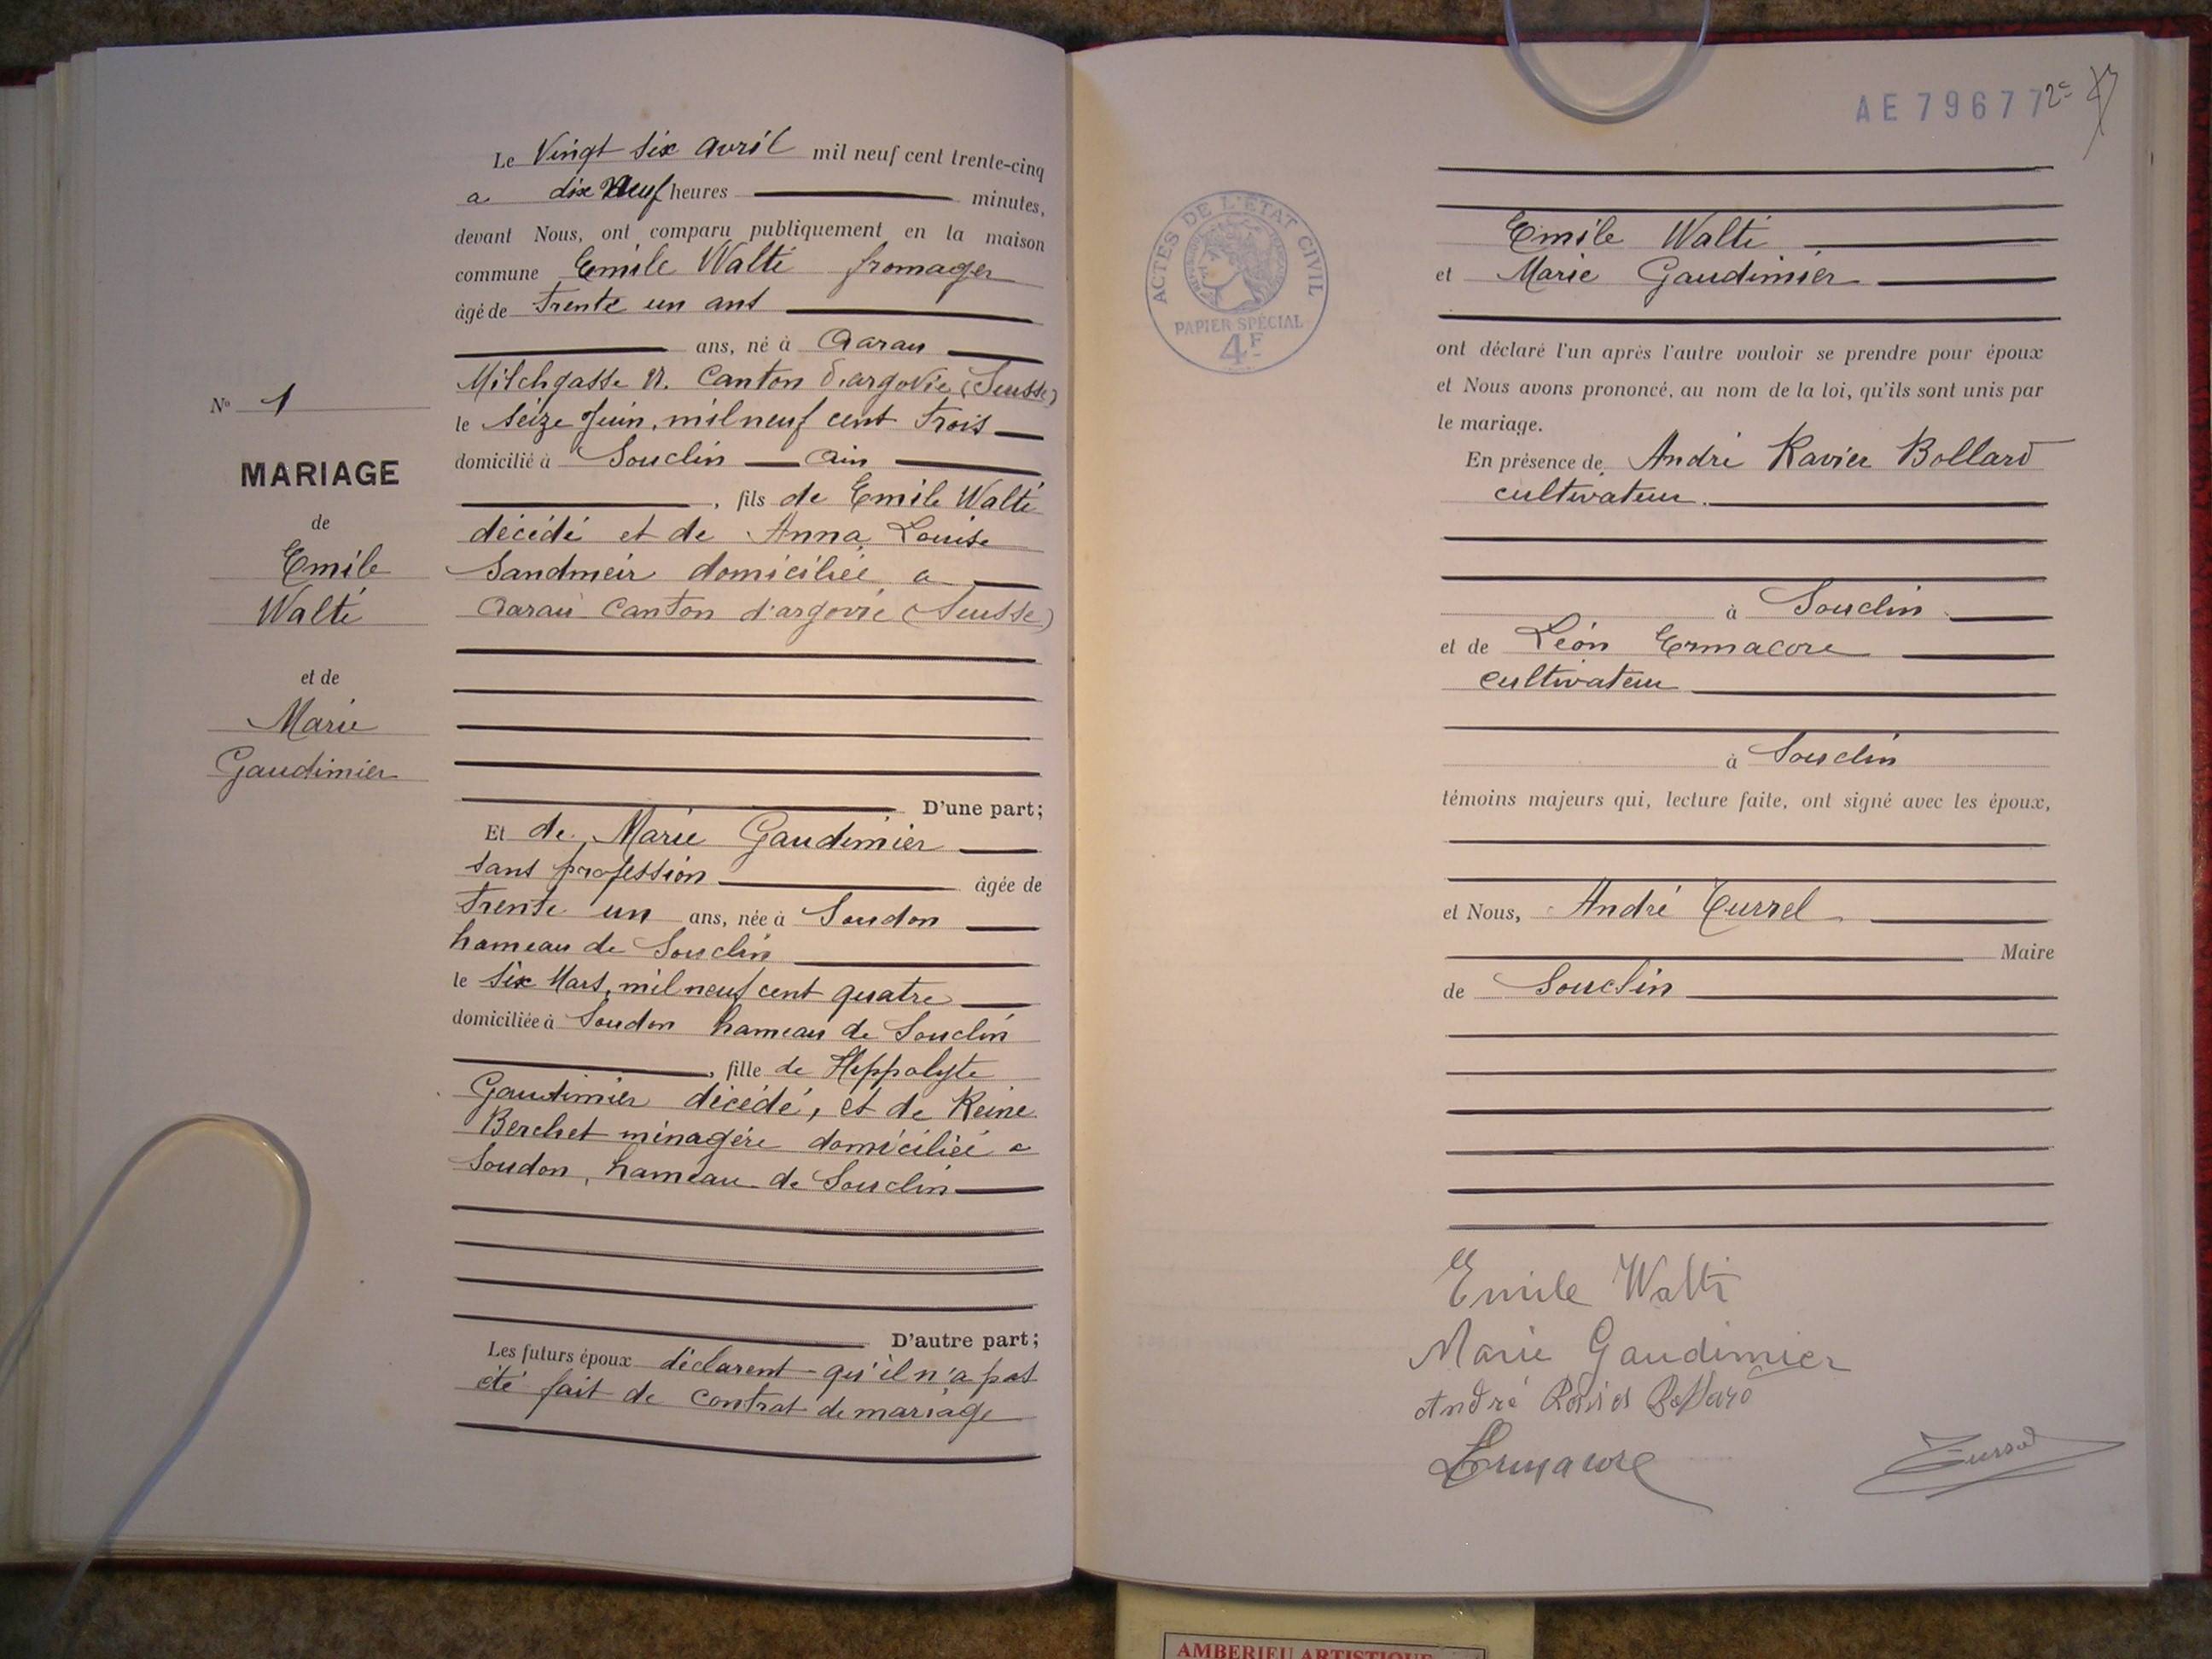 Le Vingt Six avril mil neuf cent trente-cinq
a dix Neuf heures minutes,
devant Nous, ont comparu publiquement en la maison
commune Emile Walti fromager
âgé de Trente un ans
ans, né à Aarau
Milchgasse Canton d'argovie (Suisse)
le Seize Juin, mil neuf cent Trois
domicilié à Souclin Ain
, fils de Emile Walti
décédé et de Anna Louise
Sandmeir domiciliée a
Aarau Canton d'argovie (Suisse)
D'une part;
Et de Marie Gaudimier
sans profession âgée de
Trente un ans, née à Soudon
hameau de Souclin
le Six Mars, mil neuf cent quatre
domiciliée à Soudon hameau de Souclin
, fille de Hippolyte
Gaudimier décédé, et de Reine
Berchet ménagère domiciliée a
Soudon, hameau de Souclin
D'autre part;
Les futurs époux déclarent qu'il n'a pas
été fait de contrat de mariage
No 1
MARIAGE
de
Emile
Walti
et de
Marie
Gaudimier
AE 79677
2e
ACTES DE L'ETAT CIVIL
PAPIER SPÉCIAL
4F
Emile Walti
et Marie Gaudimier
ont déclaré l'un après l'autre vouloir se prendre pour époux
et Nous avons prononcé, au nom de la loi, qu'ils sont unis par
le mariage.
En présence de André Ravier Bollard
cultivateur
à Souclin
et de Léon Ermacore
cultivateur
à Souclin
témoins majeurs qui, lecture faite, ont signé avec les époux,
et Nous, André Turrel
Maire
de Souclin
Emile Walti
Marie Gaudimier
André Ravier Bollard
Ermacore
Turrel
AMBERIEU ARTISTIQUE